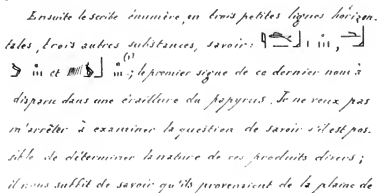 Ensuite le scribe énumère, en trois petites lignes horizon-
tales, trois autres substances, savoir :
et (1) ; le premier signe de ce dernier nom a
disparu dans une éraillure du papyrus. Je ne veux pas
m'arrêter à examiner la question de savoir s'il est pos-
sible de déterminer la nature de ces produits divers ;
il nous suffit de savoir qu'ils provenaient de la plaine de